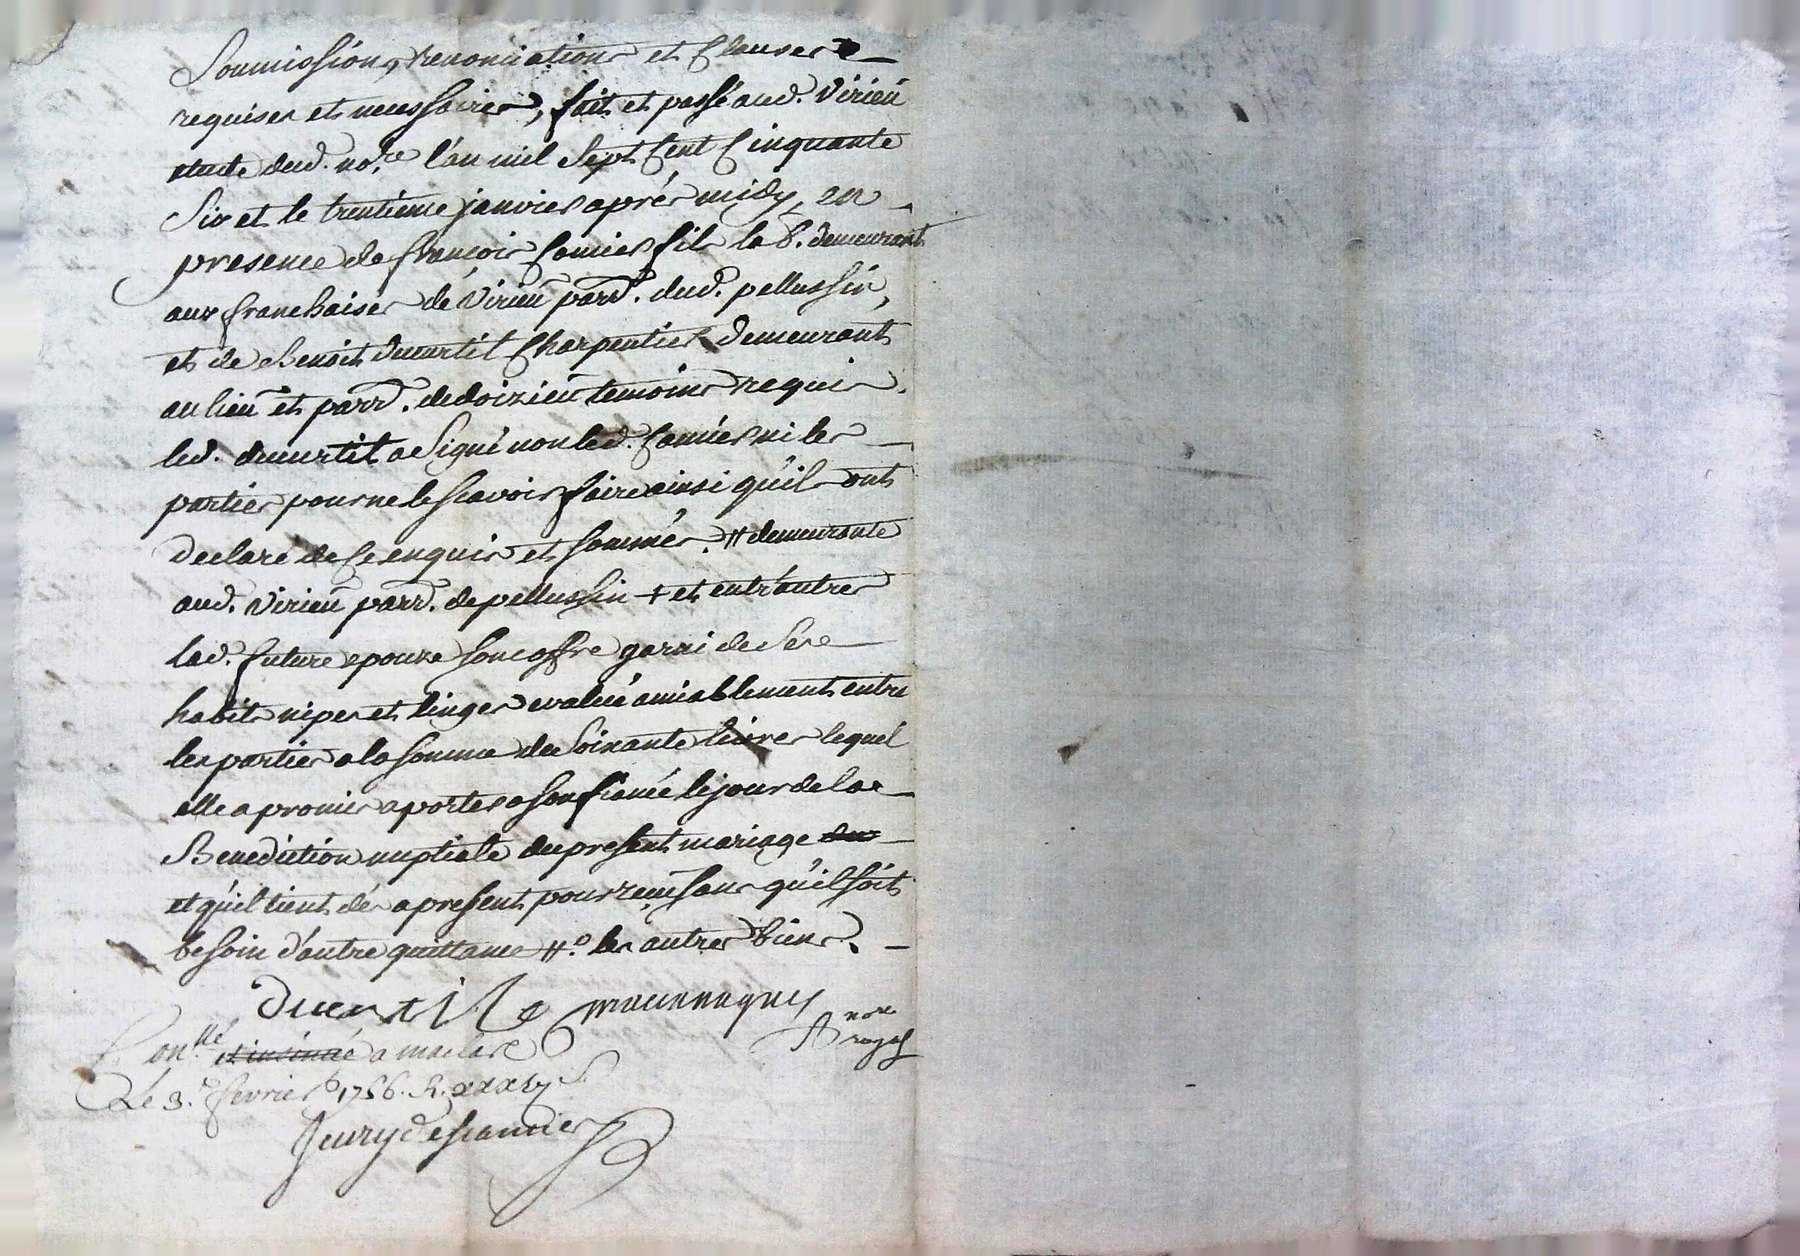 Soumissions, renonciations et Clauses
requises et necessaires, fait et passé aud. Virieu
etude dud. no.re l'an mil Sept Cent Cinquante
Six et le trentieme janvier après midy, en
presence de françois Comier fils la b. demeurant
aux franchises de Virieu parr. dud. pellussin,
et de Benoit ducurtil Charpentier demeurant
au lieu et parr. de doizieu temoins requis.
led. ducurtil a Signé non led. Comier ni les
parties pour ne le Scavoir faire ainsi qu'ils ont
declaré de Ce enquis et Sommés. # demeurante
aud. Virieu parr. de pellussin + et entr'autres
lad. future epouse Son coffre garni de Ses
habits nipes et linges evalué amiablement entre
les parties a la Somme de Soixante livres lequel
elle a promis aporter a Son fiancé le jour de la
Benediction nuptiale du present mariage
et qu'il tient dés a present pour reçu Sans qu'il Soit
besoin d'autre quittance #° les autres biens.
Ducurtil
nore
royal
Con.llé et insinué a maclas
Le 3.e fevrier 1756. R. xxxvj S